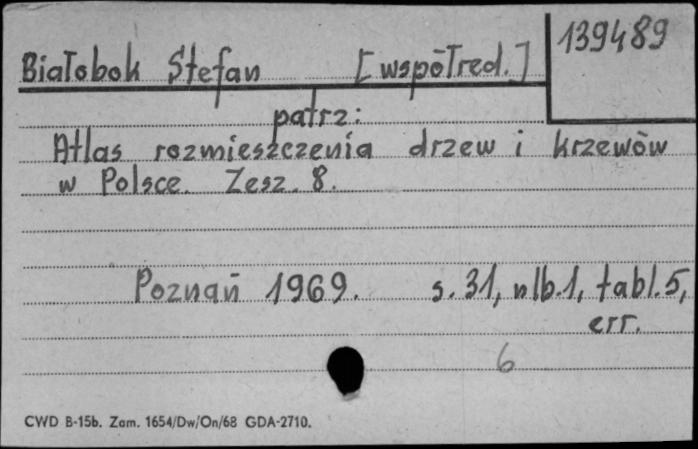 139489
Białobok Stefan [współred.]
patrz:
Atlas rozmieszczenia drzew i krzewów
w Polsce. Zesz. 8.
Poznań 1969. s. 31, nlb. 1, tabl. 5,
err.
6
CWD B-15b. Zam. 1654/Dw/On/68 GDA-2710.